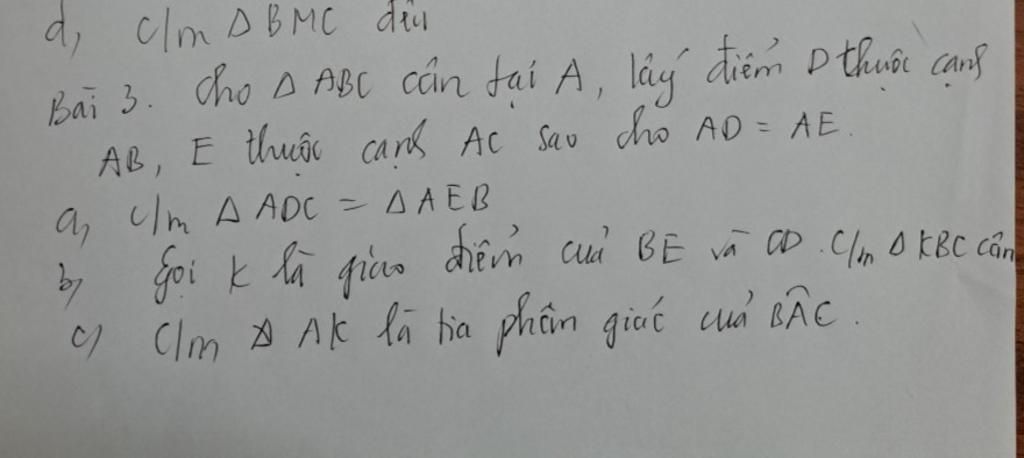 d, C/m Δ BMC đều
Bài 3. Cho Δ ABC cân tại A, lấy điểm D thuộc cạnh
AB, E thuộc cạnh AC sao cho AD = AE.
a, C/m Δ ADC = Δ AEB
b, Gọi K là giao điểm của BE và CD. C/m Δ KBC cân
c, C/m AK là tia phân giác của BÂC.